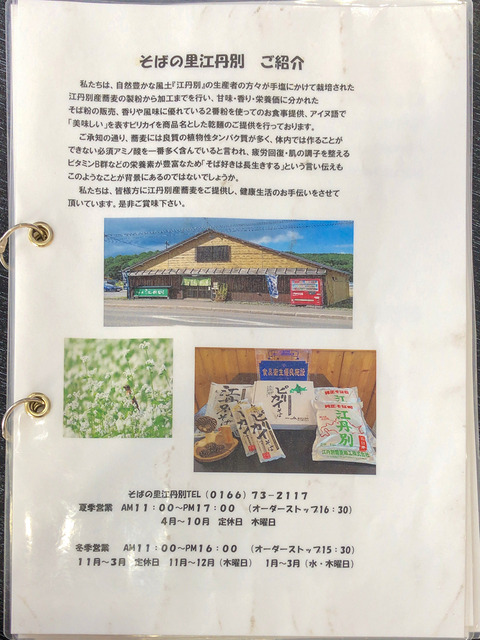 そばの里江丹別　ご紹介
私たちは、自然豊かな風土『江丹別』の生産者の方々が手塩にかけて栽培された
江丹別産蕎麦の製粉から加工までを行い、甘味・香り・栄養価に分かれた
そば粉の販売、香りや風味に優れている2番粉を使ってのお食事提供、アイヌ語で
「美味しい」を表すピリカイを商品名とした乾麺のご提供を行っております。
ご承知の通り、蕎麦には良質の植物性タンパク質が多く、体内では作ることが
できない必須アミノ酸を一番多く含んでいると言われ、疲労回復・肌の調子を整える
ビタミンB群などの栄養素が豊富なため「そば好きは長生きする」という言い伝えも
このようなことが背景にあるのではないでしょうか。
私たちは、皆様方に江丹別産蕎麦をご提供し、健康生活のお手伝いをさせて
頂いています。是非ご賞味下さい。
食品衛生優良施設
江丹別
江丹別
そばの里江丹別TEL（0166）73－2117
夏季営業　AM11：00～PM17：00　（オーダーストップ16：30）
4月～10月　定休日　木曜日
冬季営業　AM11：00～PM16：00　（オーダーストップ15：30）
11月～3月　定休日　11月～12月（木曜日）　1月～3月（水・木曜日）